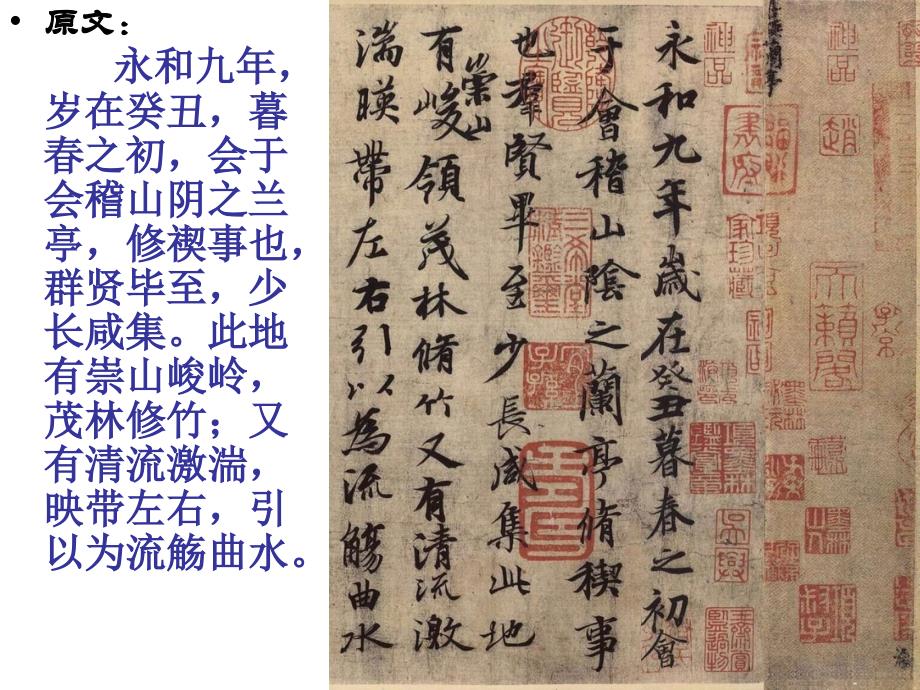 • 原文：
永和九年，
岁在癸丑，暮
春之初，会于
会稽山阴之兰
亭，修禊事也，
群贤毕至，少
长咸集。此地
有崇山峻岭，
茂林修竹；又
有清流激湍，
映带左右，引
以为流觞曲水。
永和九年歲在癸丑暮春之初會
于會稽山陰之蘭亭脩稧事
也羣賢畢至少長咸集此地
有崇山峻領茂林脩竹又有清流激
湍暎帶左右引以為流觴曲水
神品
神品
趙
天籟閣
子京
三希堂精鑑璽
宜子孫
吳興